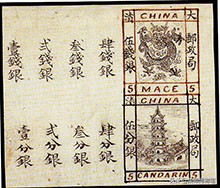 壹錢銀
弍錢銀
叁錢銀
肆錢銀
清 CHINA 大
伍錢銀
郵政局
5 MACE 5
壹分銀
弍分銀
叁分銀
肆分銀
清 CHINA 大
伍分銀
郵政局
5 CANDARINS 5